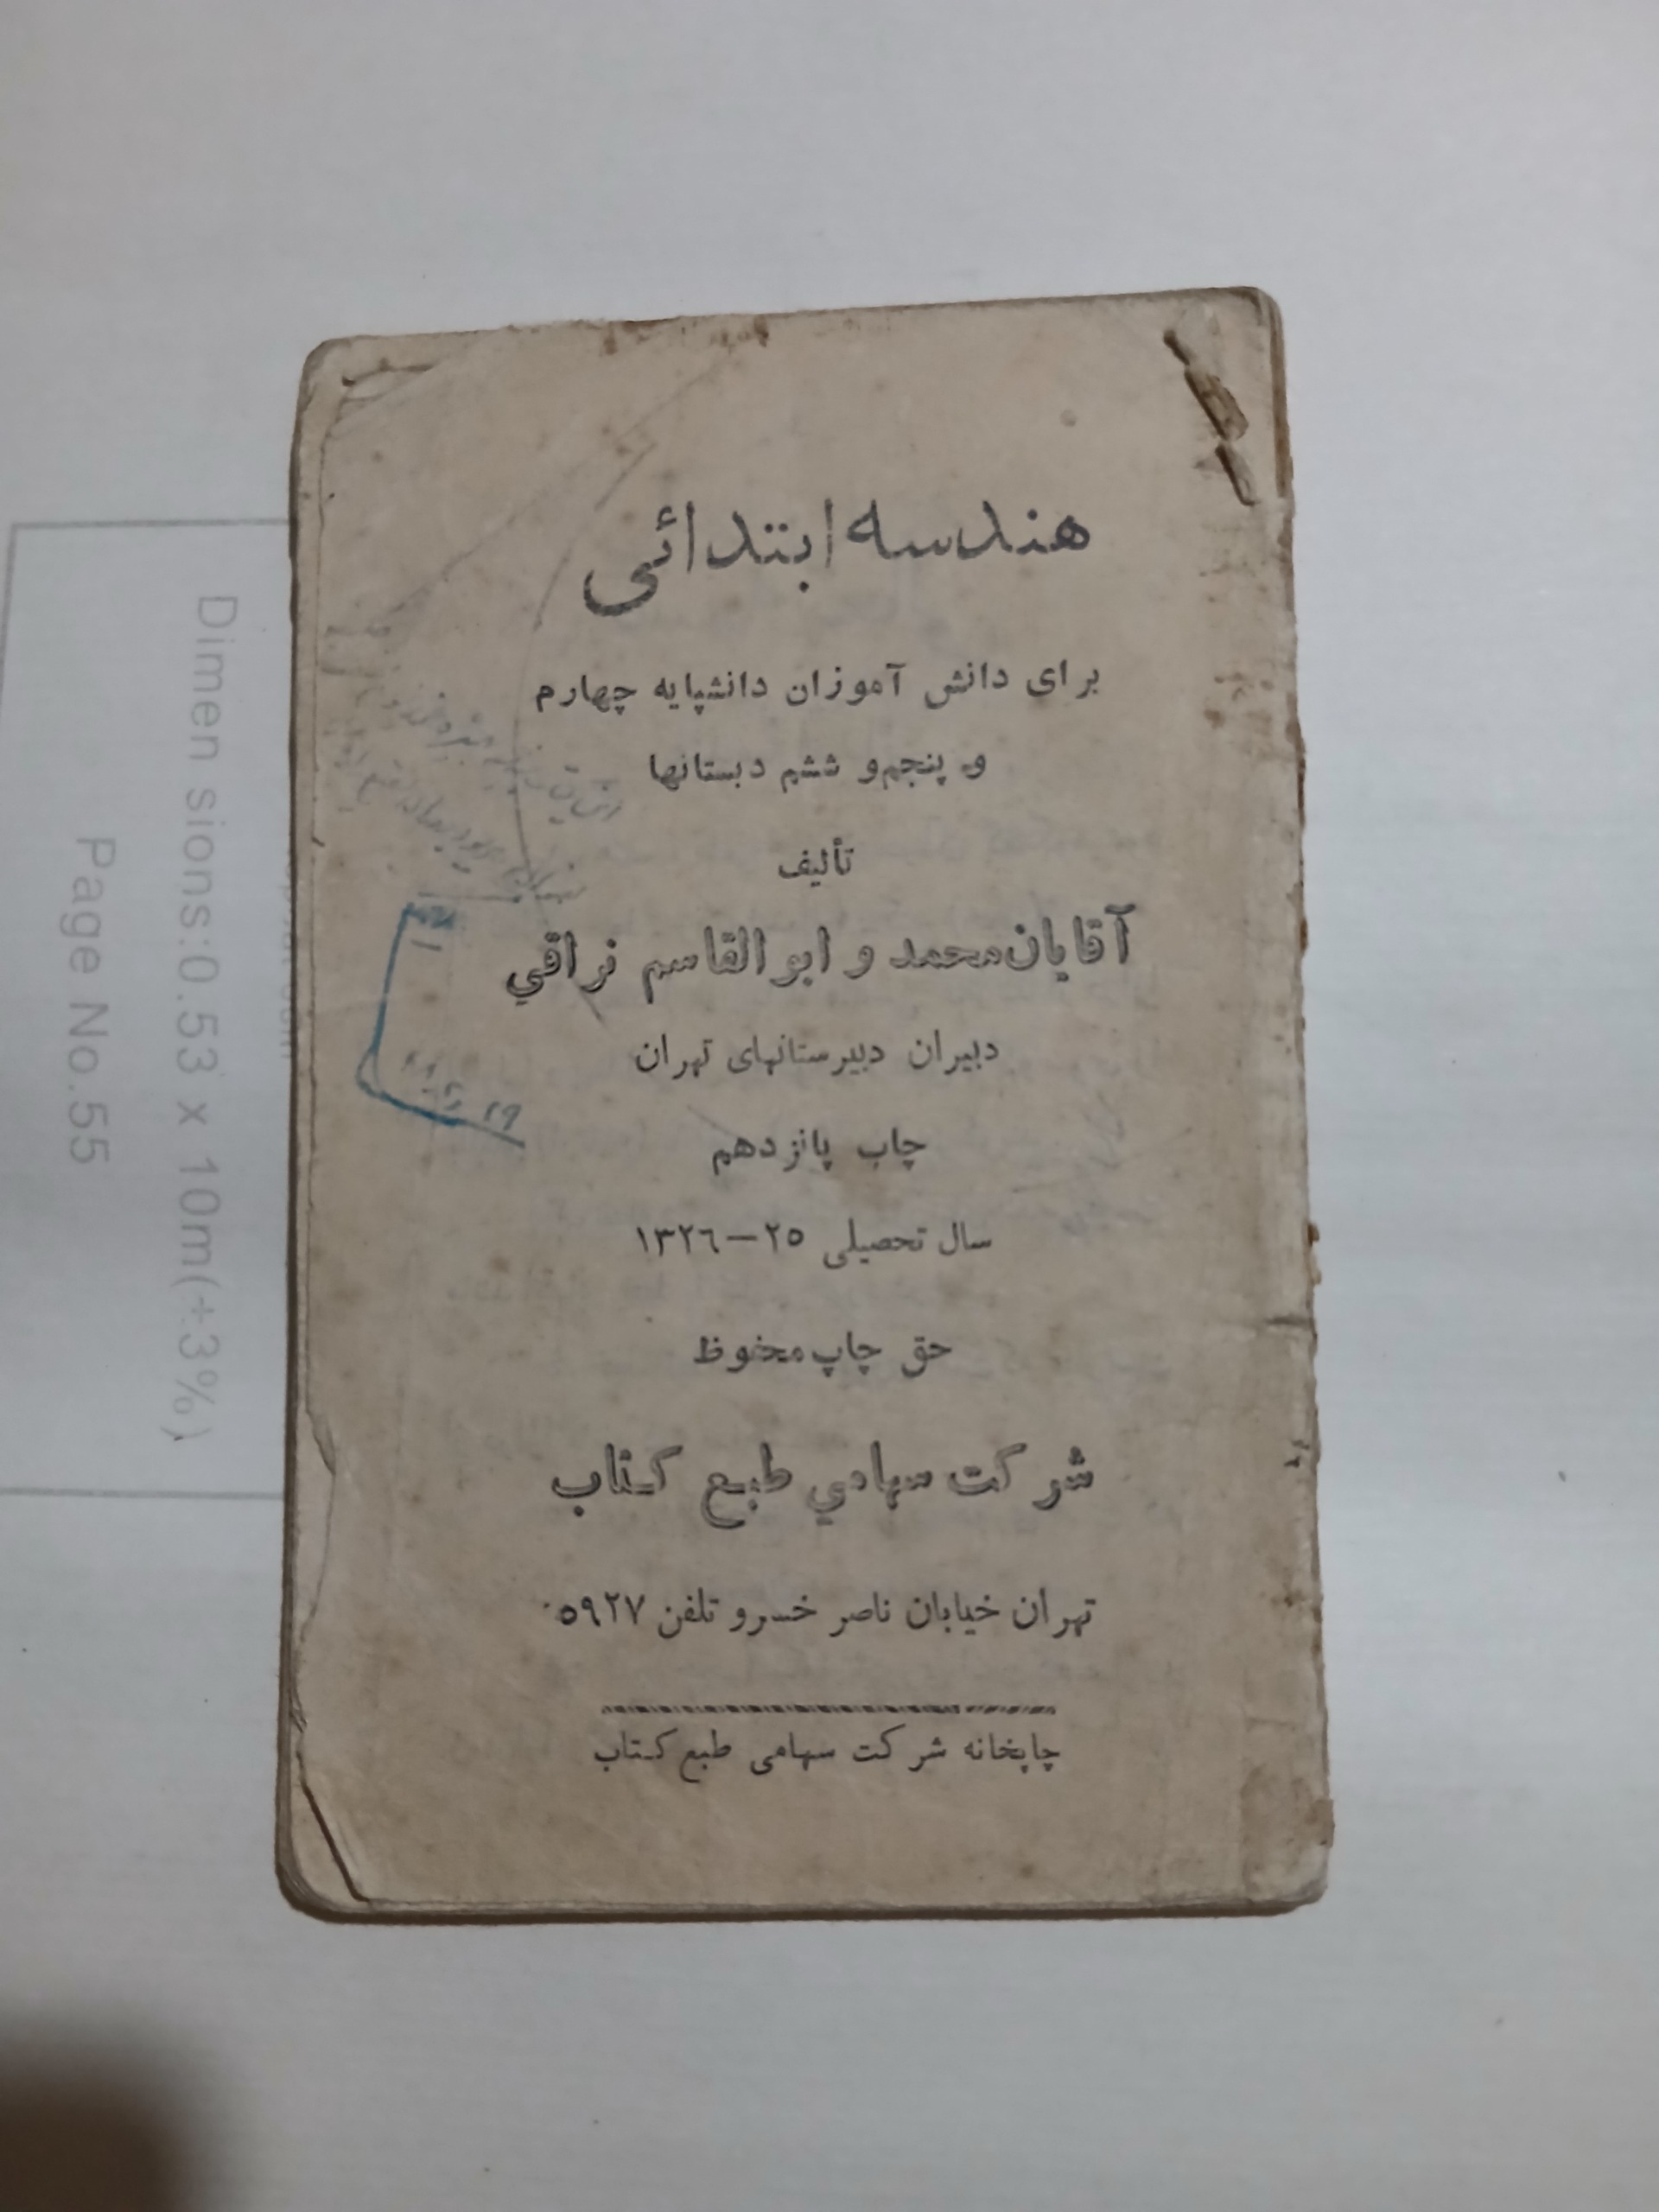 هندسه ابتدائی
برای دانش آموزان دانشپایه چهارم
و پنجم و ششم دبستانها
تألیف
آقایان محمد و ابوالقاسم نراقي
دبیران دبیرستانهای تهران
چاپ پانزدهم
سال تحصیلی ۲۵—۱۳۲٦
حق چاپ محفوظ
شرکت سهامي طبع کتاب
تهران خیابان ناصر خسرو تلفن ۵۹۲۷
چاپخانه شرکت سهامی طبع کتاب
Dimen sions:0.53 x 10m(+3%)
Page No.55